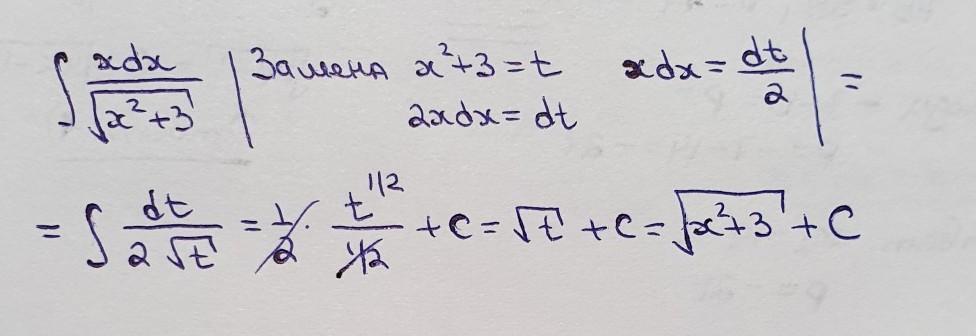 ∫ xdx/√(x²+3) | Замена x²+3 = t xdx = dt/2 | =
2xdx = dt
= ∫ dt/(2√t) = 1/2 · t^(1/2)/(1/2) + C = √t + C = √(x²+3) + C